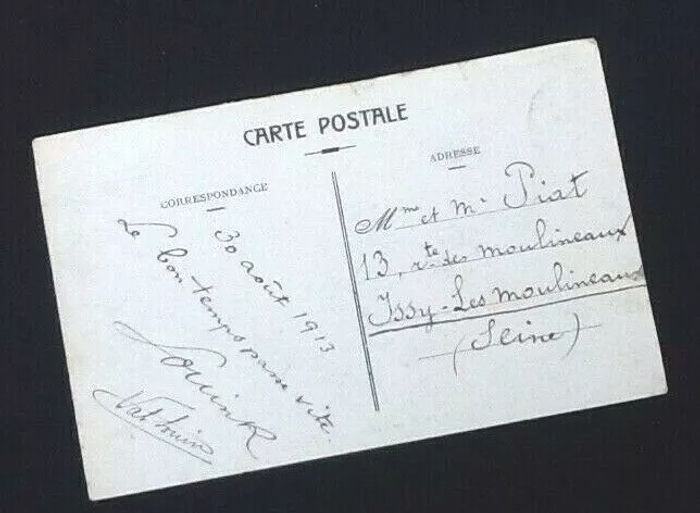 CARTE POSTALE
CORRESPONDANCE
ADRESSE
30 août 1913
Le bon temps passe vite.
Mme et Mr Piat
13, rte des moulineaux
Issy-Les moulineaux
(Seine)